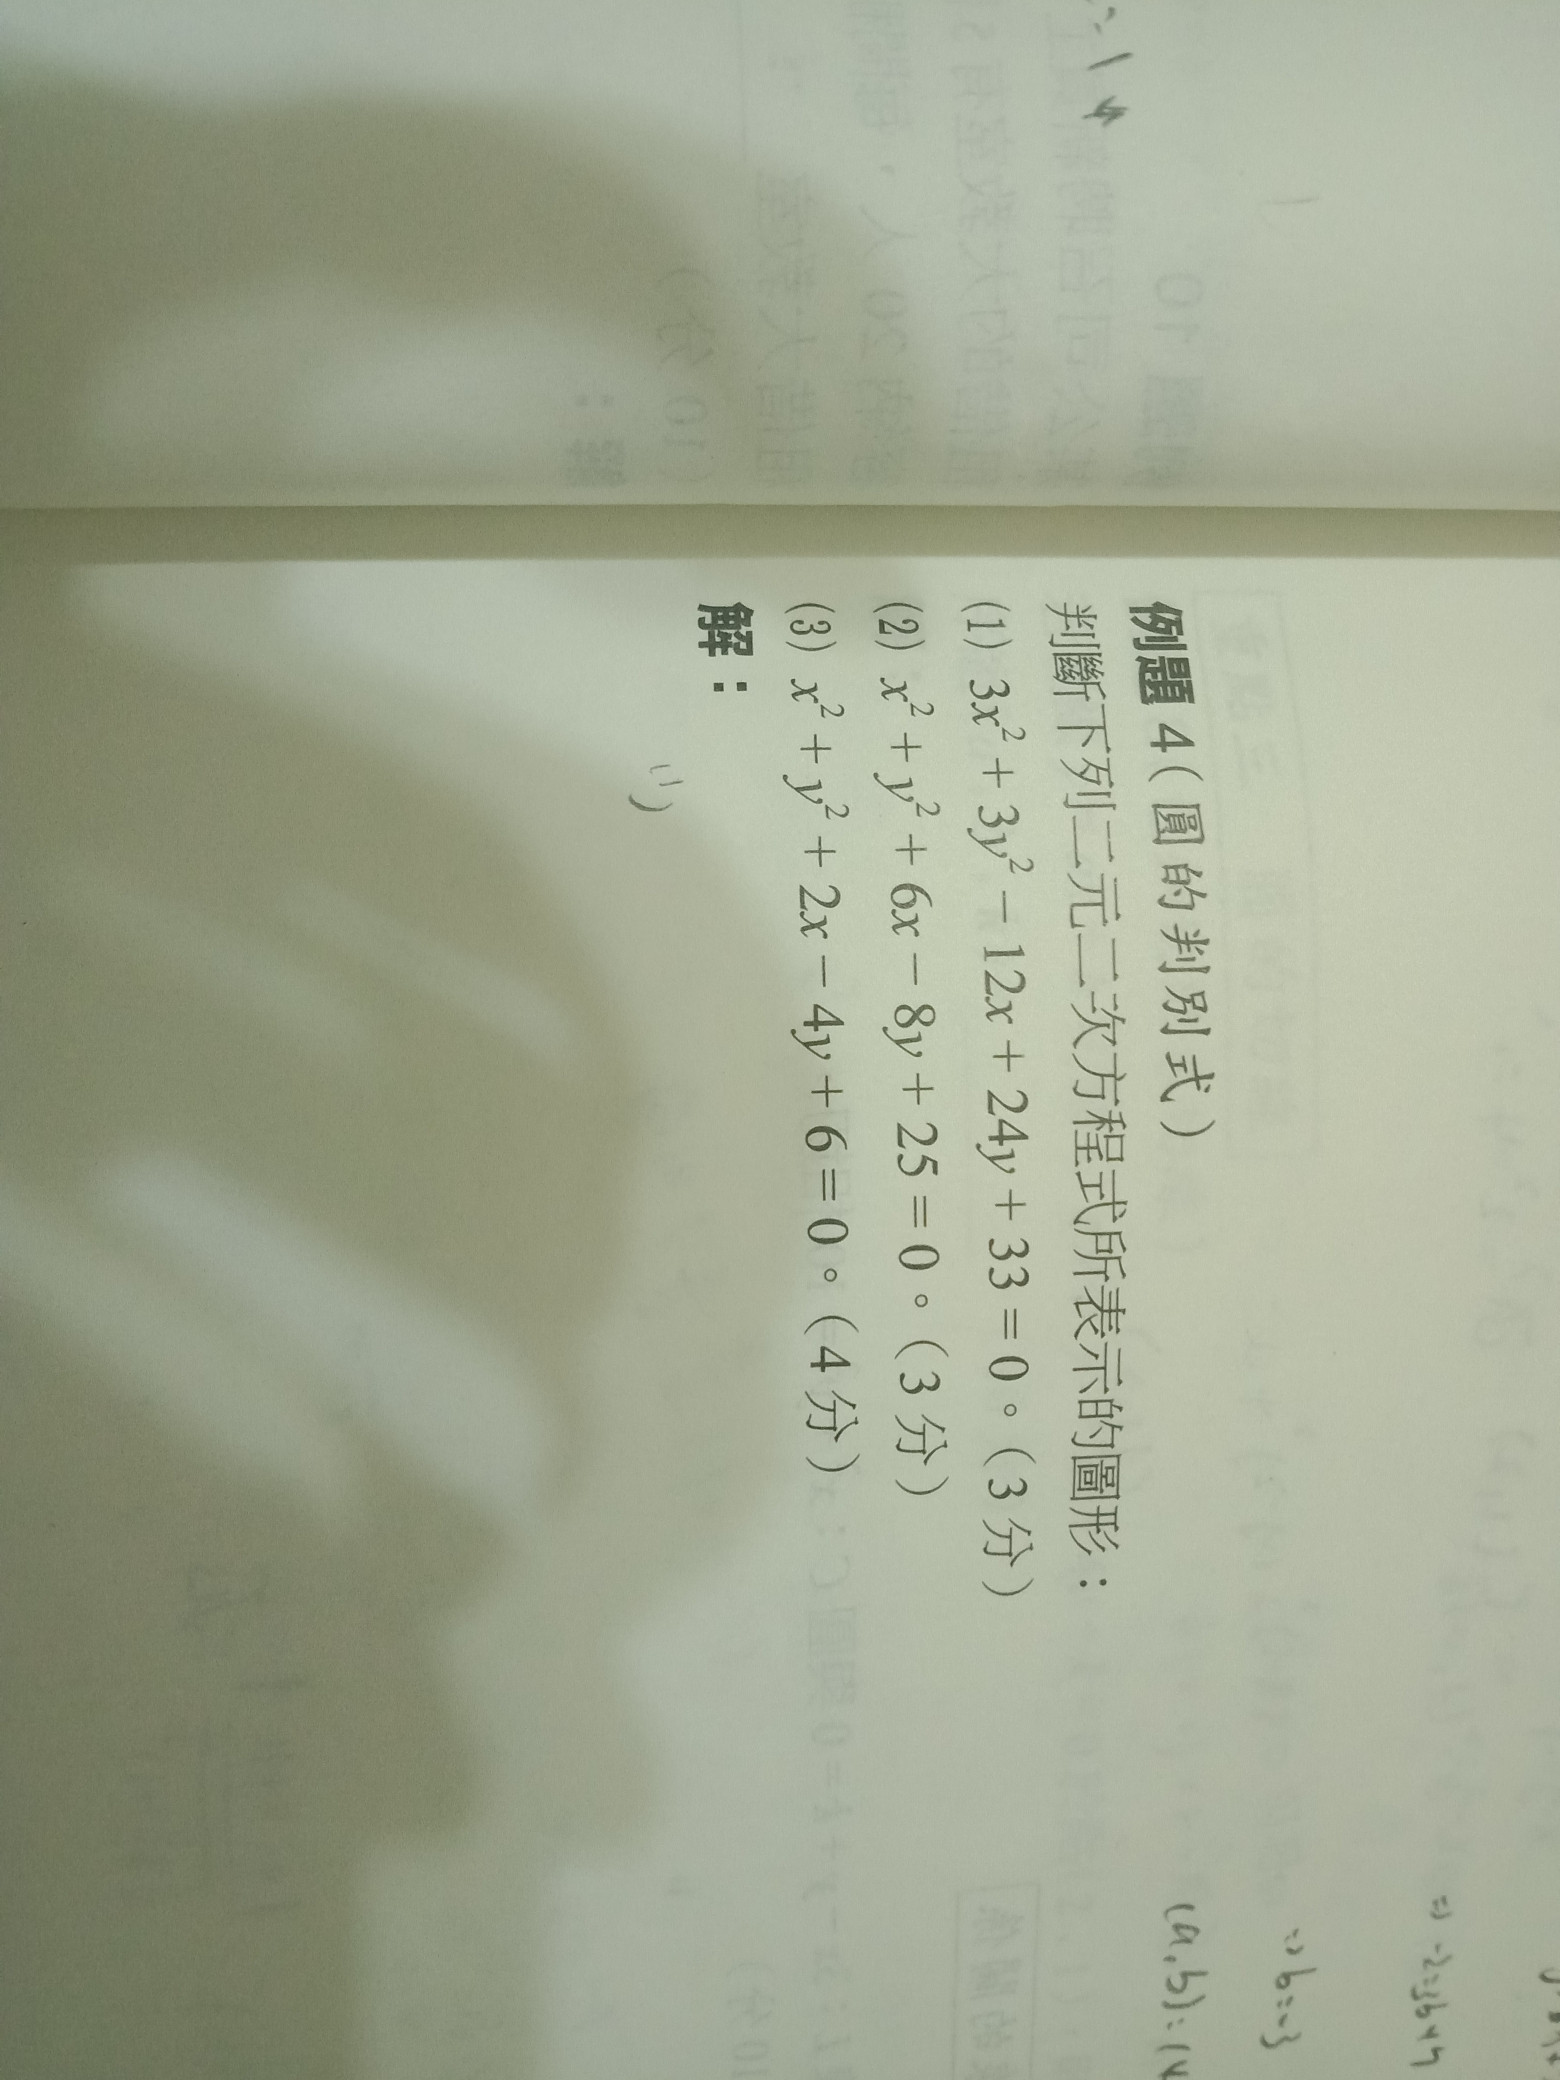 例題 4(圓的判別式)
判斷下列二元二次方程式所表示的圖形：
(1) 3x²+3y²-12x+24y+33=0。(3分)
(2) x²+y²+6x-8y+25=0。(3分)
(3) x²+y²+2x-4y+6=0。(4分)
解：
(1)
⇒ b=-3
(a,b)=(